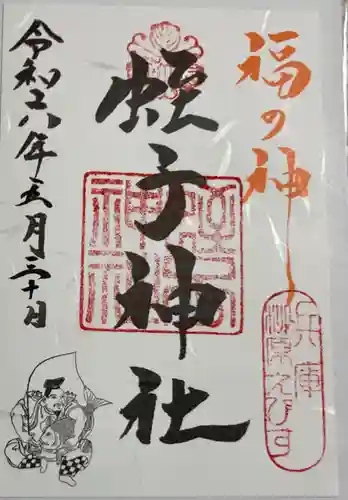 福の神
兵庫
柳原えびす
蛭子神社
蛭子
神社
令和六年五月三十日